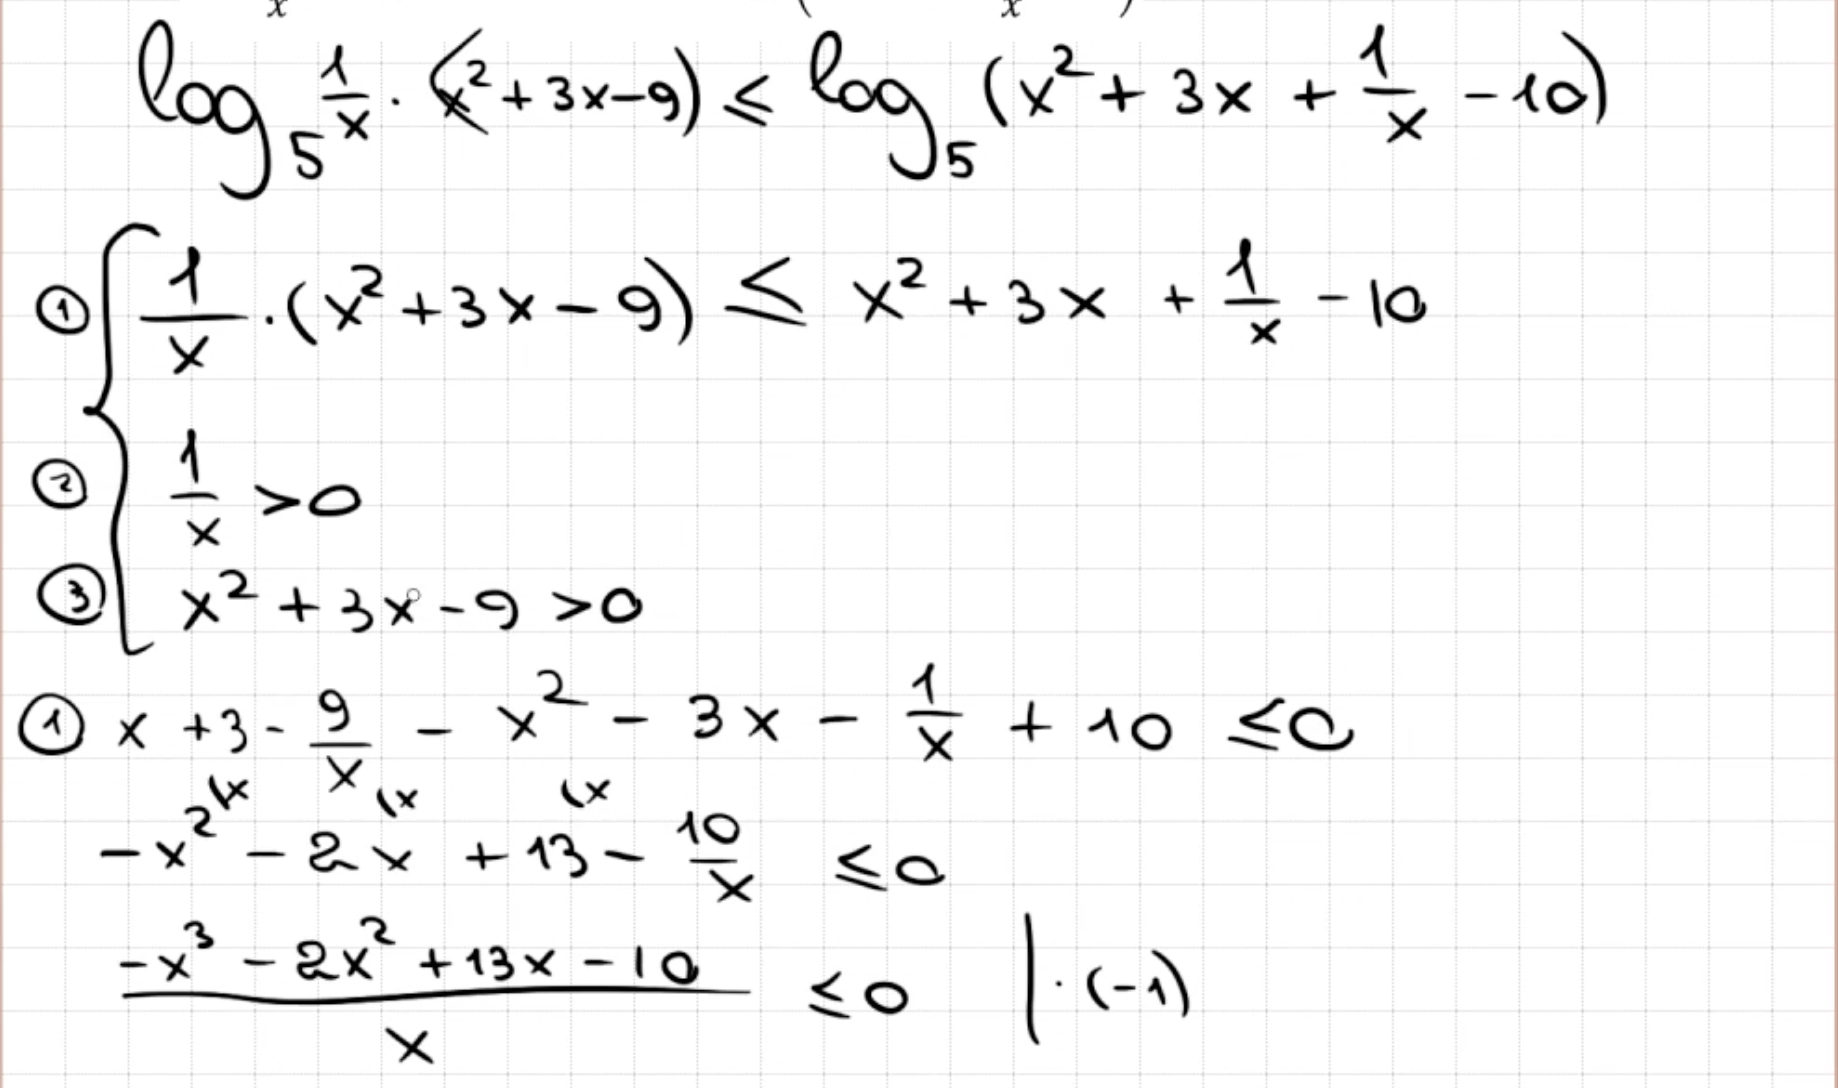 x ( x )
log₅ 1/x · (x² + 3x - 9) ≤ log₅ (x² + 3x + 1/x - 10)
① { 1/x · (x² + 3x - 9) ≤ x² + 3x + 1/x - 10
② 1/x > 0
③ x² + 3x - 9 > 0
① x + 3 - 9/x - x² - 3x - 1/x + 10 ≤ 0
(x (x (x
-x² - 2x + 13 - 10/x ≤ 0
(-x³ - 2x² + 13x - 10)/x ≤ 0 | · (-1)